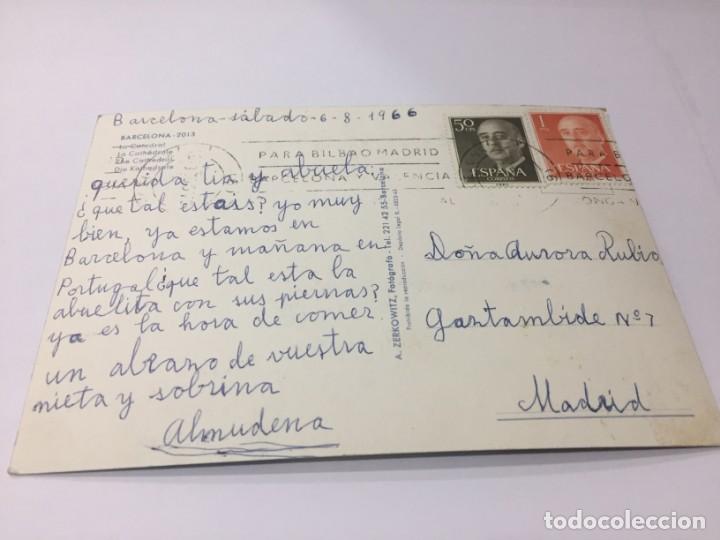 Barcelona-sábado-6-8-1966
BARCELONA-2013
La Catedral
La Cathédrale
The Cathedral
Die Kathedrale
querida tia y abuela
¿que tal estais? yo muy
bien, ya estamos en
Barcelona y mañana en
Portugal ¿que tal esta la
abuelita con sus piernas?
ya es la hora de comer
un abrazo de vuestra
nieta y sobrina
Almudena
A. ZERKOWITZ, Fotógrafo - Tel. 221 42 55 - Barcelona
Prohibida la reproducción - Depósito legal B.
50 CTS
ESPAÑA
CORREOS
1
ESPAÑA
PARA BILBAO MADRID
BARCELONA Y VALENCIA
PARA B
BARCEL
Doña Aurora Rubio
Gaztambide Nº 7
Madrid
todocoleccion
todocoleccion.net